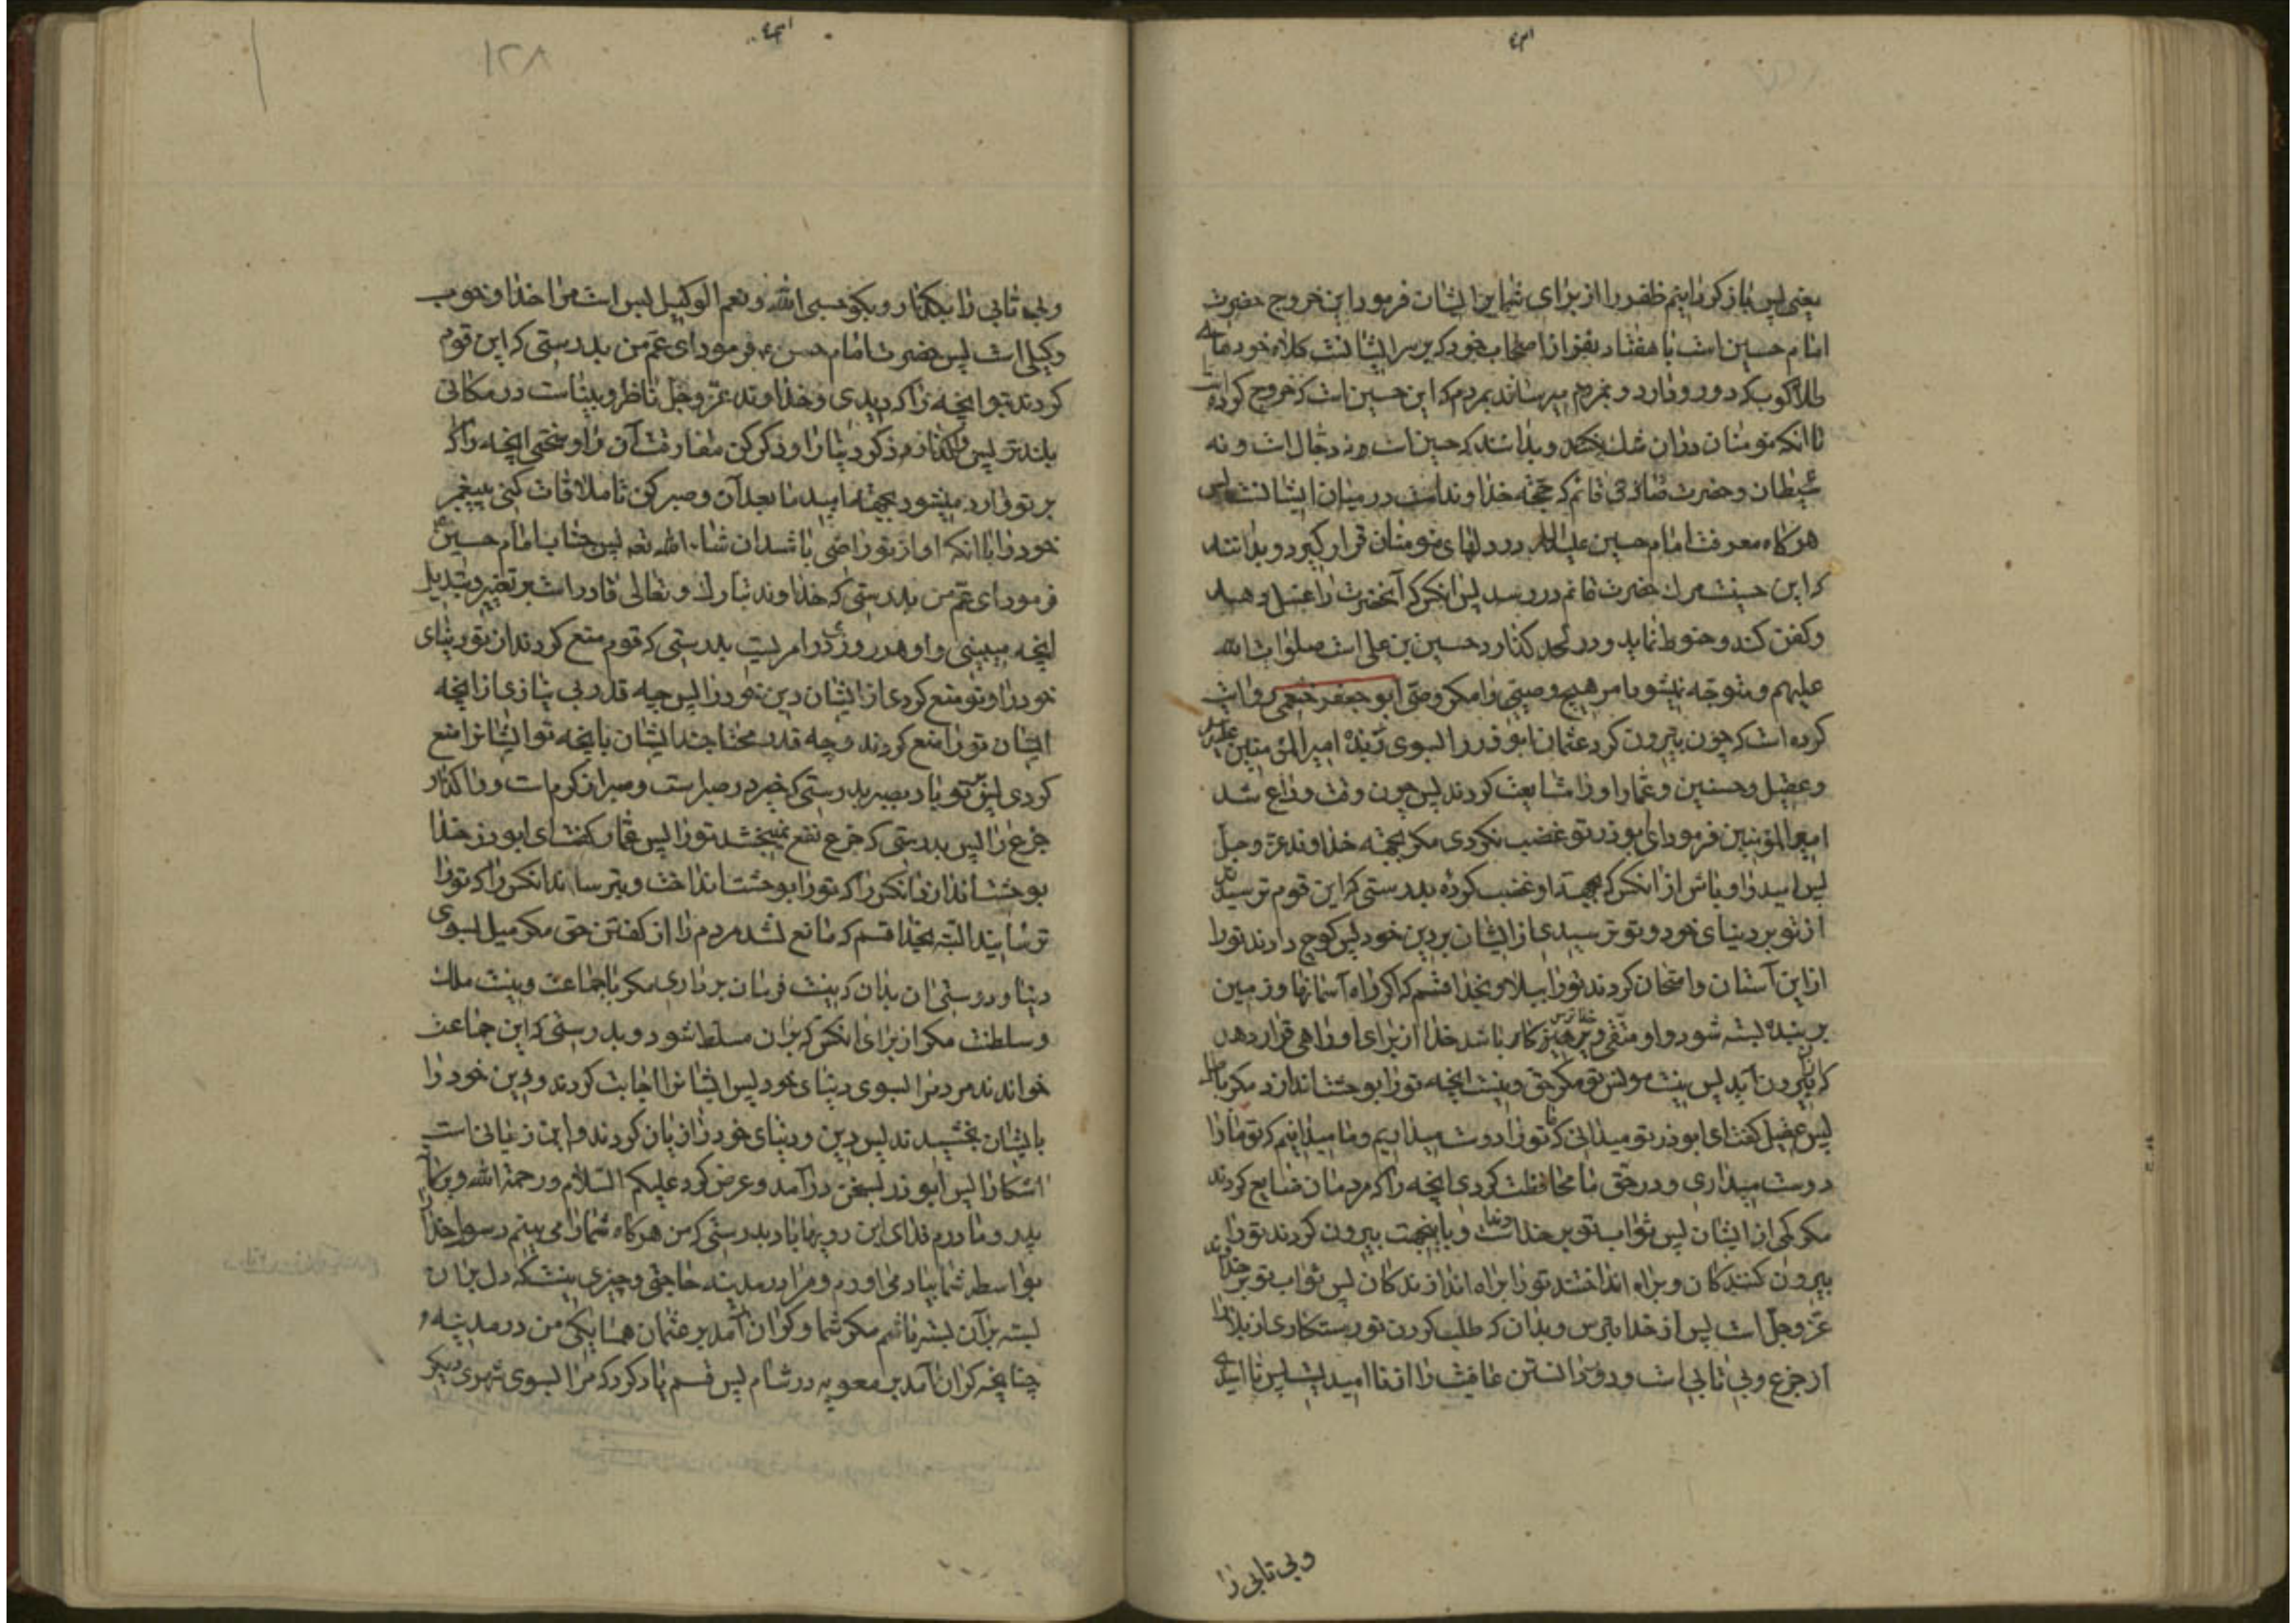 یعنی پس باز کردانیم ظفر را از برای شما بر ایشان فرمود این خروج حضرت
امام حسین است با هفتاد نفر از اصحاب خود که بر سر ایشانست کلاه خودهای
طلاکوب که دور و دارد و بمردم میرسانند بمردم که این حسین است که خروج کرده است
تا انکه مومنان در ان شک نکنند و بدانند که حسین است و نه دجال است و نه
شیطان و حضرت صادق قائم که حجّة خداوند است در میان ایشانست پس
هر کاه معرفت امام حسین علیه السلام در دلهای مومنان قرار کیرد و بدانند
که این حسینست مرک حضرت قائم در رسد پس انکس که آنحضرت را غسل دهد
و کفن کند و حنوط نماید و در لحد کذارد حسین بن علی است صلوات الله
علیهم و متوجّه نمیشود امر هیچ وصیّی را مکر وصّی ابو جعفر خثعمی روایت
کرده است که چون بیرون کرد عثمان ابوذر را بسوی ربذه امیر المؤمنین علیه السلام
و عقیل و حسنین و عمّار او را مشایعت کردند پس چون وقت وداع شد
امیر المؤمنین فرمود ای ابوذر تو غضب نکردی مکر بجهة خداوند عزّ و جلّ
پس امیدوار باش از انکس که بجهة او غضب کرده بدرستی که این قوم ترسیدند
از تو بر دنیای خود و تو ترسیدی از ایشان بر دین خود پس کوچ دادند تو را
از این آستان و امتحان کردند تو را ببلا و بخدا قسم که اکر راه آسمانها و زمین
بر بنده بسته شود و او متّقی و پرهیز کار باشد خدا از برای او راهی قرار دهد
که از ان بیرون آید پس نیست مونس تو مکر حق و نیست انچه تو را بوحشت اندازد مکر باطل
پس عقیل کفت ای ابوذر تو میدانی که ما تو را دوست میداریم و ما میدانیم که تو ما را
دوست میداری و در حق ما محافظت کردی انچه را که مردمان ضایع کردند
مکر کمی از ایشان پس ثواب تو بر خداوند است و باینجهت بیرون کردند تو را
بیرون کنندکان و براه انداختند تو را براه اندازندکان پس ثواب تو بر خداوند
عزّ و جلّ است پس از خدا بترس و بدان که طلب کردن تو رستکاری از بلا را
از جزع و بی تابی است و دور دانستن عافیت را از نا امیدیست پس نا امیدی
و بی تابی را
و بی تابی را بکذار و بکو حسبی الله و نعم الوکیل بس است مرا خدا و خوب
وکیلی است پس حضرت امام حسن ع فرمود ای عمّ من بدرستی که این قوم
کردند بتو انچه را که دیدی و خداوند عزّ و جلّ ناظر و بیناست در مکانی
بلندتر پس واکذار ذکر دنیا را و ذکر کن مفارقت آن را و سختی انچه را که
بر تو وارد میشود بجهة امید ما بعد آن و صبر کن تا ملاقات کنی پیغمبر
خود را با انکه او از تو راضی باشد ان شاء الله تعه پس جناب امام حسین ع
فرمود ای عمّ من بدرستی که خداوند تبارک و تعالی قادر است بر تغییر و تبدیل
انچه میبینی و او هر روزی در امریست بدرستی که قوم منع کردند از تو دنیای
خود را و تو منع کردی از ایشان دین خود را پس چه قدر بی نیازی از انچه
ایشان تو را منع کردند و چه قدر محتاجند ایشان بانچه تو ایشانرا منع
کردی پس بر تو باد بصبر بدرستی که خیر در صبر است و صبر از کرم است و واکذار
جزع را پس بدرستی که جزع نفع نمیبخشد تو را پس عمّار کفت ای ابوذر خدا
بوحشت اندازد انکس را که تو را بوحشت انداخت و بترساند انکس را که تو را
ترسانید البتّه بخدا قسم که مانع نشد مردم را از کفتن حق مکر میل بسوی
دنیا و دوستی ان بدان که نیست فرمان برداری مکر با جماعت و نیست ملک
و سلطنت مکر از برای انکس که بر ان مسلط شود و بدرستی که این جماعت
خواندند مردمرا بسوی دنیای خود پس ایشانرا اجابت کردند و دین خود را
بایشان بخشیدند پس دین و دنیای خود را زیان کردند و این زیانیست
اشکارا پس ابوذر بسخن درآمد و عرض کرد علیکم السّلام و رحمة الله و برکاته
پدر و مادرم فدای این رویها باد بدرستی که من هر کاه شما را می بینم رسول خدا را
بواسطه شما بیاد می اورم و مرا در مدینه حاجتی و چیزی نیست که دل بر ان
بسته بر آن بسته باشم مکر شما و کران آمد بر عثمان همسایکی من در مدینه و
چنانچه کران آمد بر معویه در شام پس قسم یاد کرد که مرا بسوی شهری دیکر